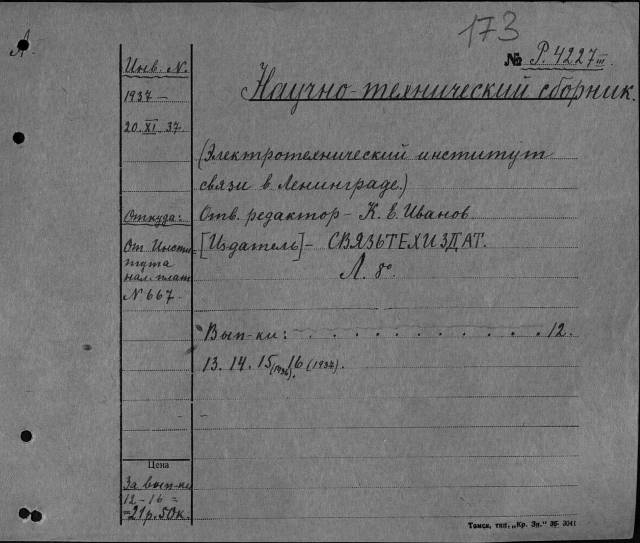 173
№ Р. 4227 III
А.
Инв. N.
1937 –
20. XI 37.
Откуда:
От Инсти-
тута
нал. плат
N 667
Научно-технический сборник.
(Электротехнический институт
связи в Ленинграде.)
Отв. редактор – К. Е. Иванов
[Издатель] – СВЯЗЬТЕХИЗДАТ.
Л. 8°
Вып-ки: . . . . . . . . . . . 12.
13. 14. 15 (1936). 16 (1937).
Цена
За вып-ки
12 – 16 =
= 21 р. 50 к.
Томск, тип. „Кр. Зн." 36 3041